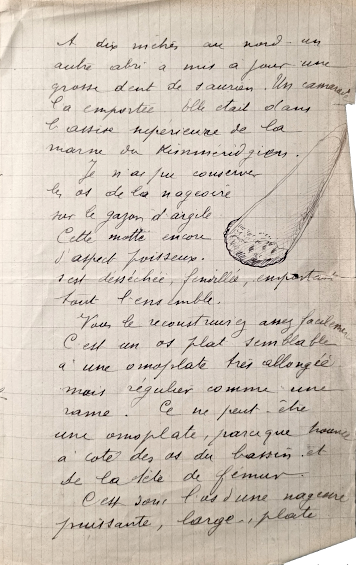 A dix mètres au nord un
autre abri a mis à jour une
grosse dent de saurien. Un camarade
l'a emportée elle était dans
l'assise supérieure de la
marne du Kimméridgien.
Je n'ai pu conserver
les os de la nageoire
sur le gazon d'argile.
Cette motte encore
d'aspect poisseux.
s'est desséchée, fendillée, emportant
tout l'ensemble.
Vous le reconstruirez assez facilement
C'est un os plat semblable
à une omoplate très allongée
mais régulier comme une
rame. Ce ne peut être
une omoplate, parceque trouvé
à coté des os du bassin et
de la tête de fémur.
C'est donc l'os d'une nageoire
puissante, large, plate